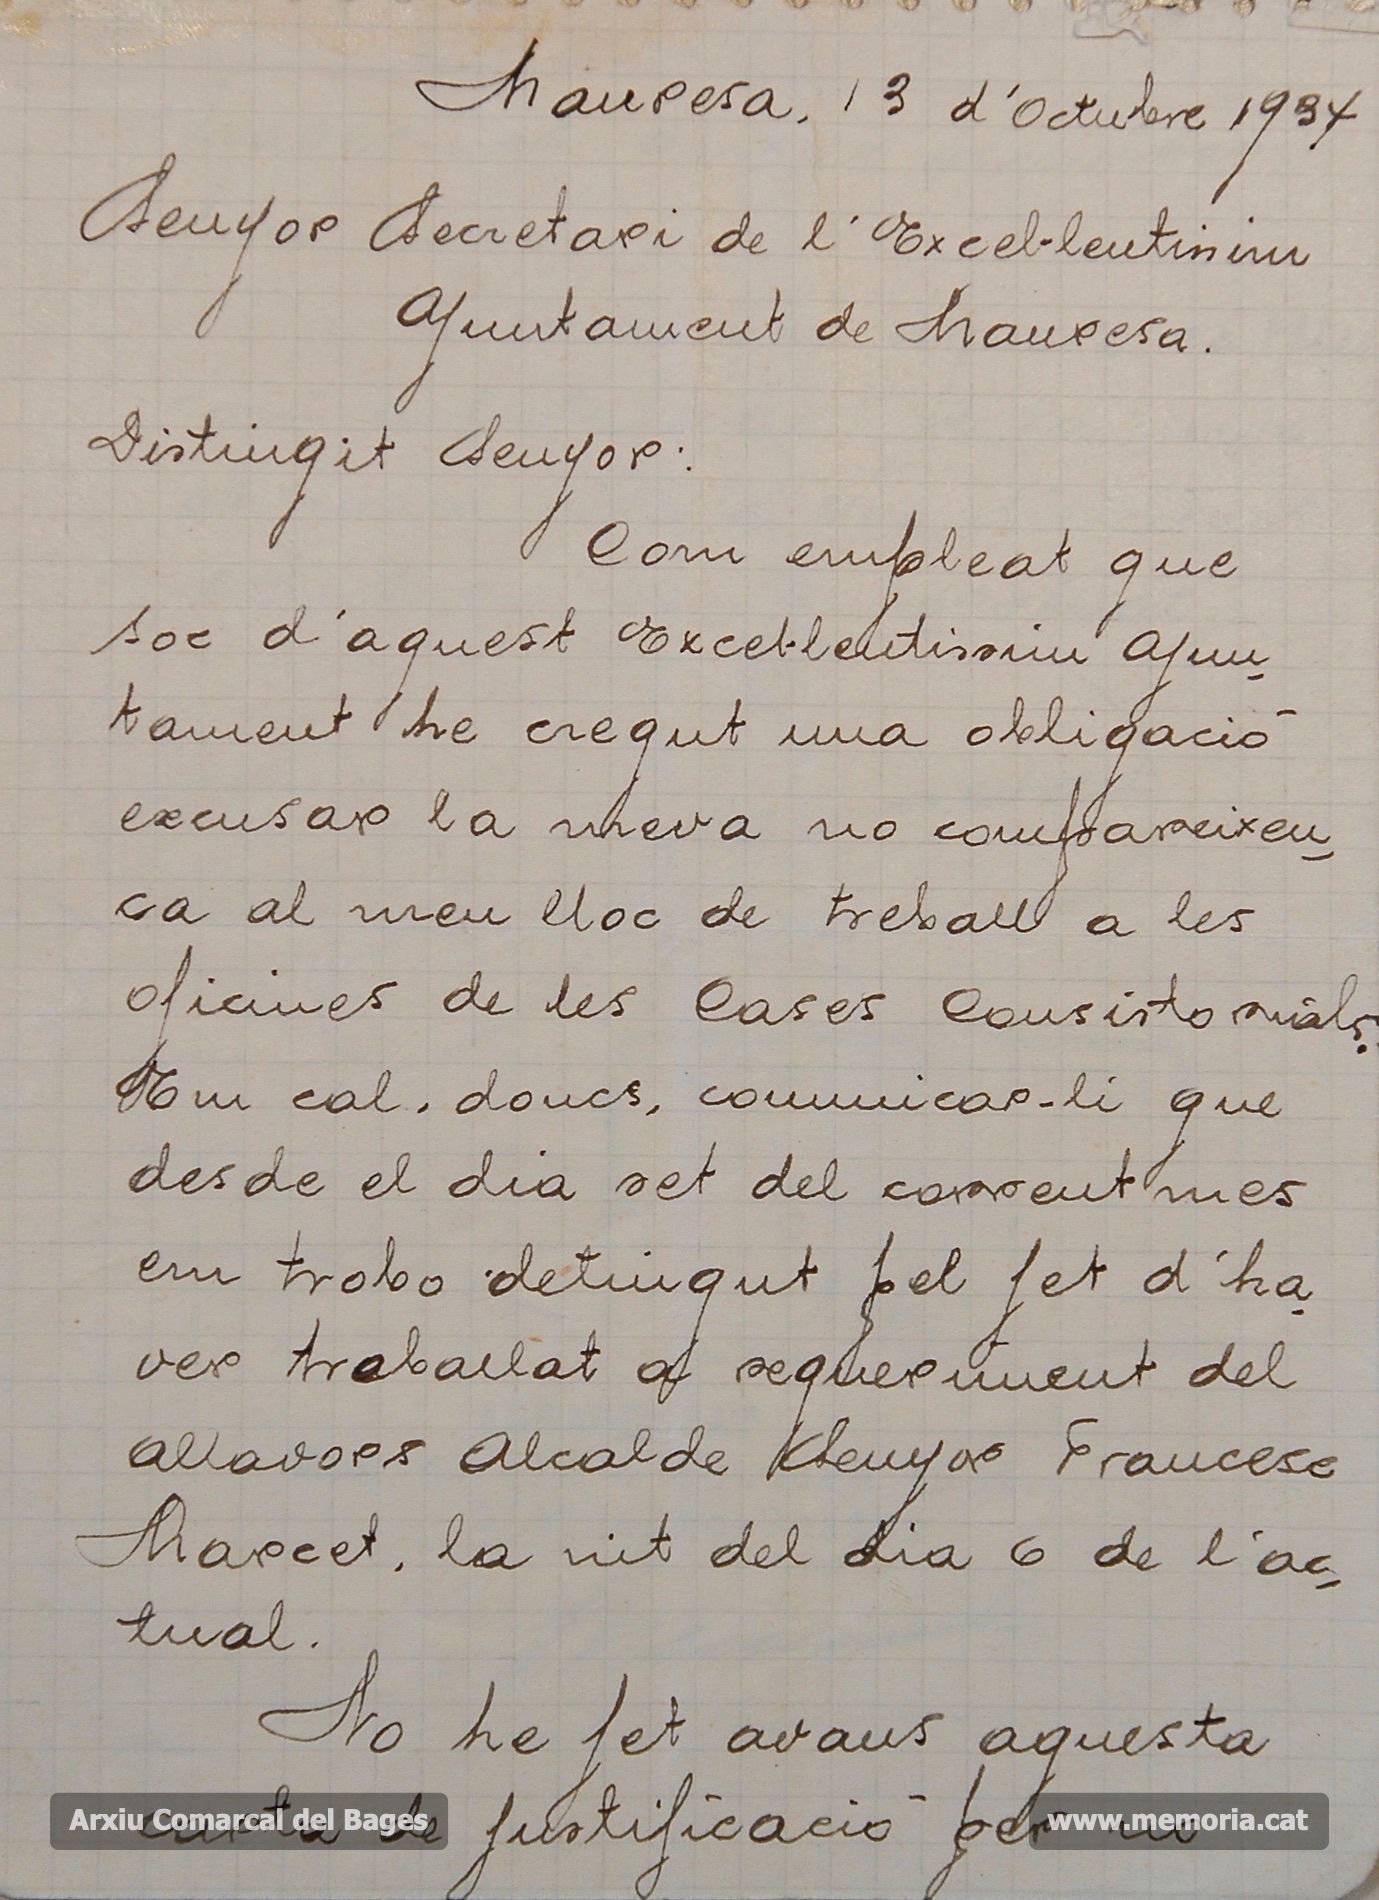 Manresa, 13 d'Octubre 1934
Senyor Secretari de l'Excel·lentissim
Ajuntament de Manresa.
Distingit Senyor:
Com empleat que
soc d'aquest Excel·lentissim Ajun-
tament he cregut una obligació
excusar la meva no compareixen-
ça al meu lloc de treball a les
oficines de les Cases Consistorials.
Em cal, doncs, comunicar-li que
desde el dia set del corrent mes
em trobo detingut pel fet d'ha-
ver traballat a requeriment del
allavors Alcalde Senyor Francesc
Marcet, la nit del dia 6 de l'ac-
tual.
No he fet avans aquesta
carta de justificació per no
Arxiu Comarcal del Bages
www.memoria.cat